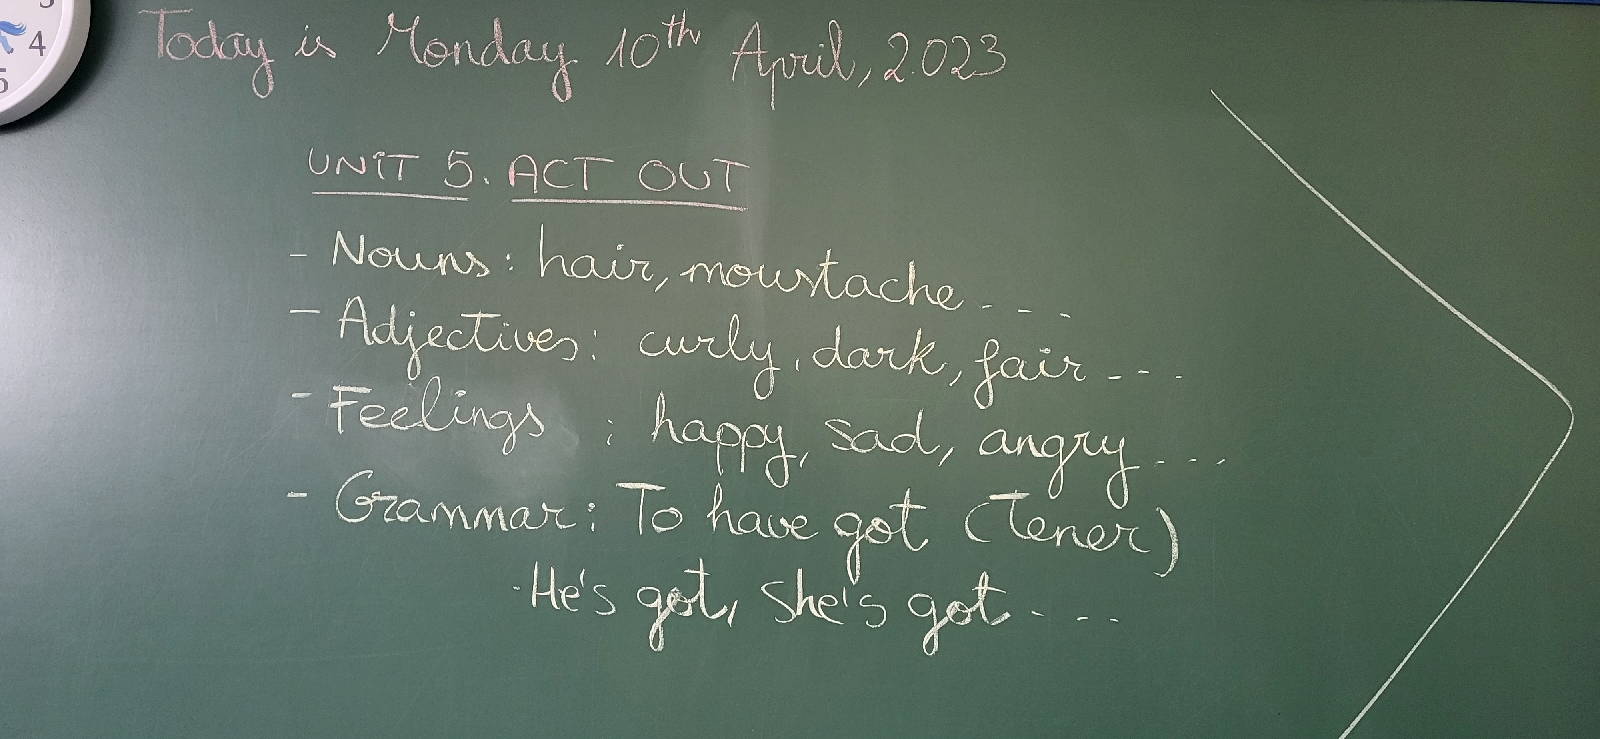 3
4
5
Today is Monday 10th April, 2.023
UNIT 5. ACT OUT
- Nouns: hair, moustache - - -
- Adjectives: curly, dark, fair - - -
- Feelings : happy, sad, angry - - -
- Grammar: To have got (Tener)
·He's got, She's got - - -